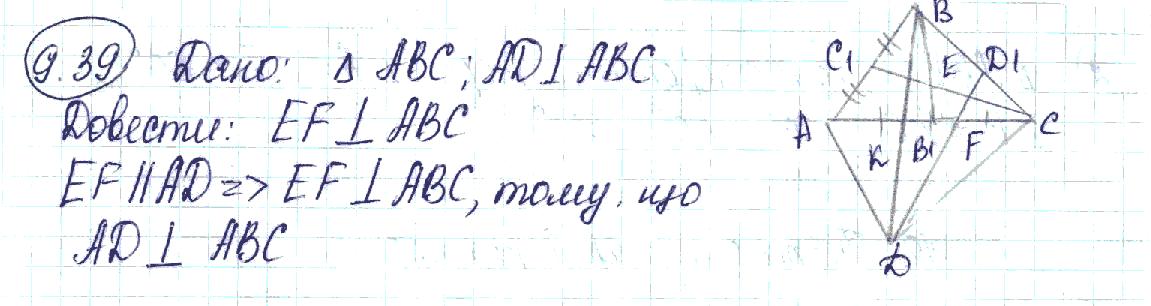 9.39 Дано: Δ ABC; AD⊥ABC
Довести: EF⊥ABC
EF||AD=> EF⊥ABC, тому що
AD⊥ABC
B
C1
E
D1
A
K
B1
F
C
D